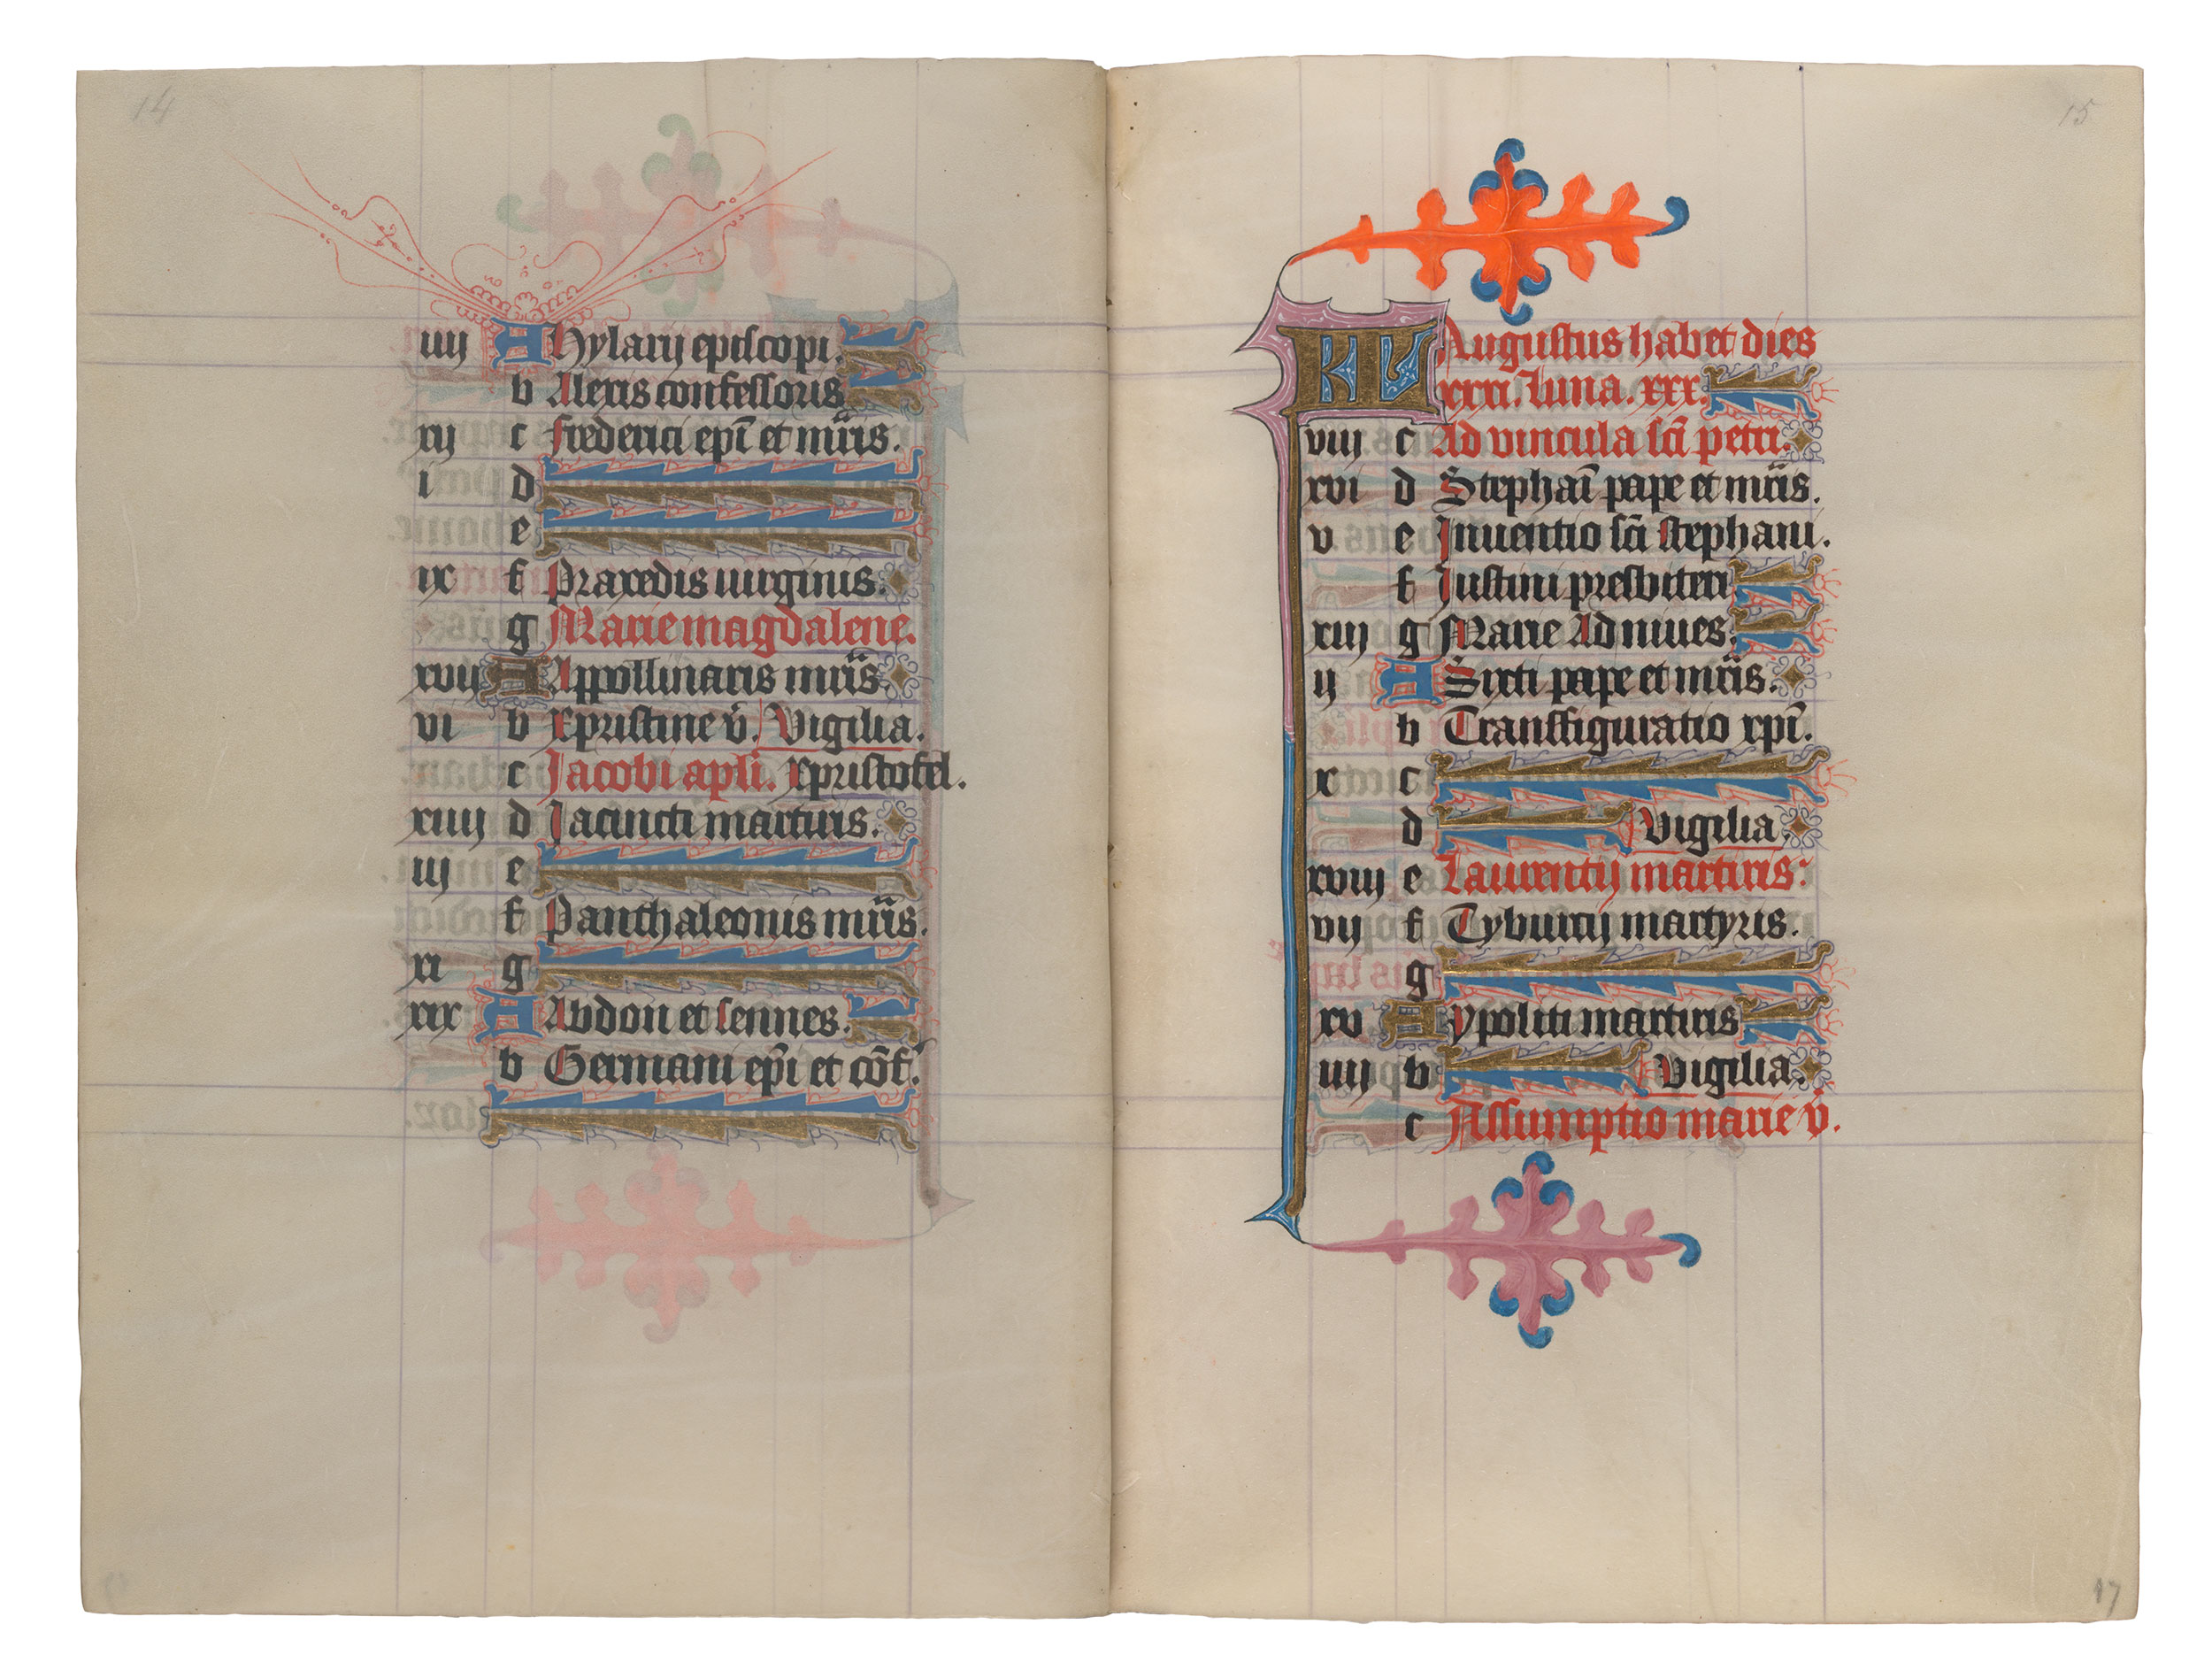 14
iiij A Hylarij episcopi.
b Alexis confessoris
xij c Frederici ep̄i et mr̄is.
i d
e
ix f Praxedis uirginis.
g Marie magdalene.
xvij A Appollinaris mr̄is.
vi b Xpristine v̄. Vigilia.
c Jacobi apli. Xpristofel.
xiiij d Jacincti martiris.
iij e
f Panthaleonis mr̄is.
xi g
xix A Abdon et sennes.
b Germani ep̄i et cōf.
15
KL Augustus habet dies
xxxi. Luna. xxx.
viij c Ad vincula sc̄i petri.
xvi d Stephāi pape et mr̄is.
v e Inuentio sc̄i stephani.
f Justini presbiteri
xiij g Marie Ad niues.
ij A Sixti pape et mr̄is.
b Transfiguratio xpī.
x c
d Vigilia.
xviij e Laurentij martiris:
vij f Tyburcij martyris.
g
xv A ypoliti martiris
iiij b Vigilia.
c Assumptio marie v̄.
17